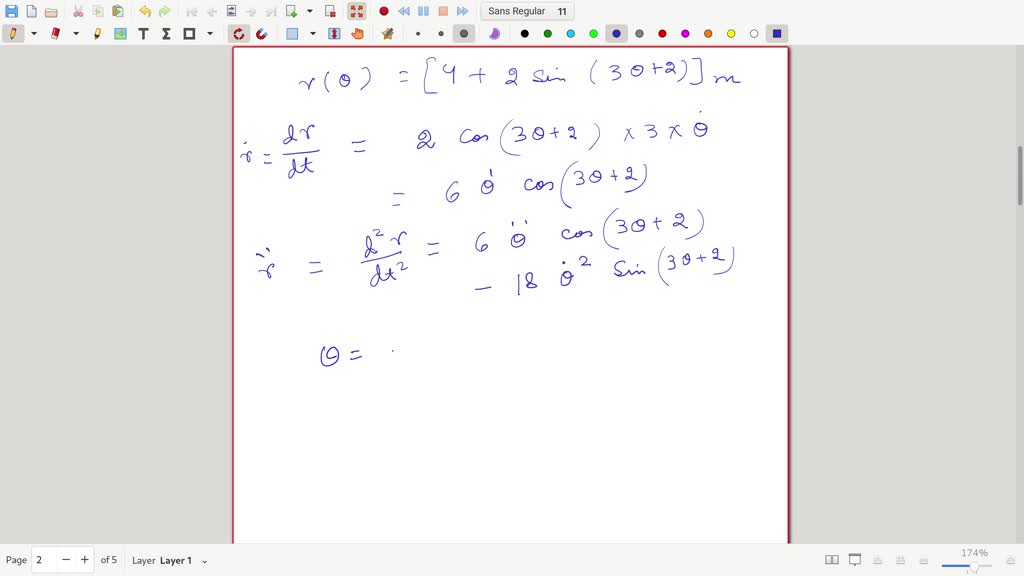 Sans Regular 11
r(θ) = [4 + 2 sin (3θ+2)] m
ṙ = dr/dt = 2 cos(3θ+2) × 3 × θ̇
= 6 θ̇ cos(3θ+2)
r̈ = d²r/dt² = 6 θ̈ cos(3θ+2)
− 18 θ̇² sin(3θ+2)
θ =
Page 2 − + of 5 Layer Layer 1 174%